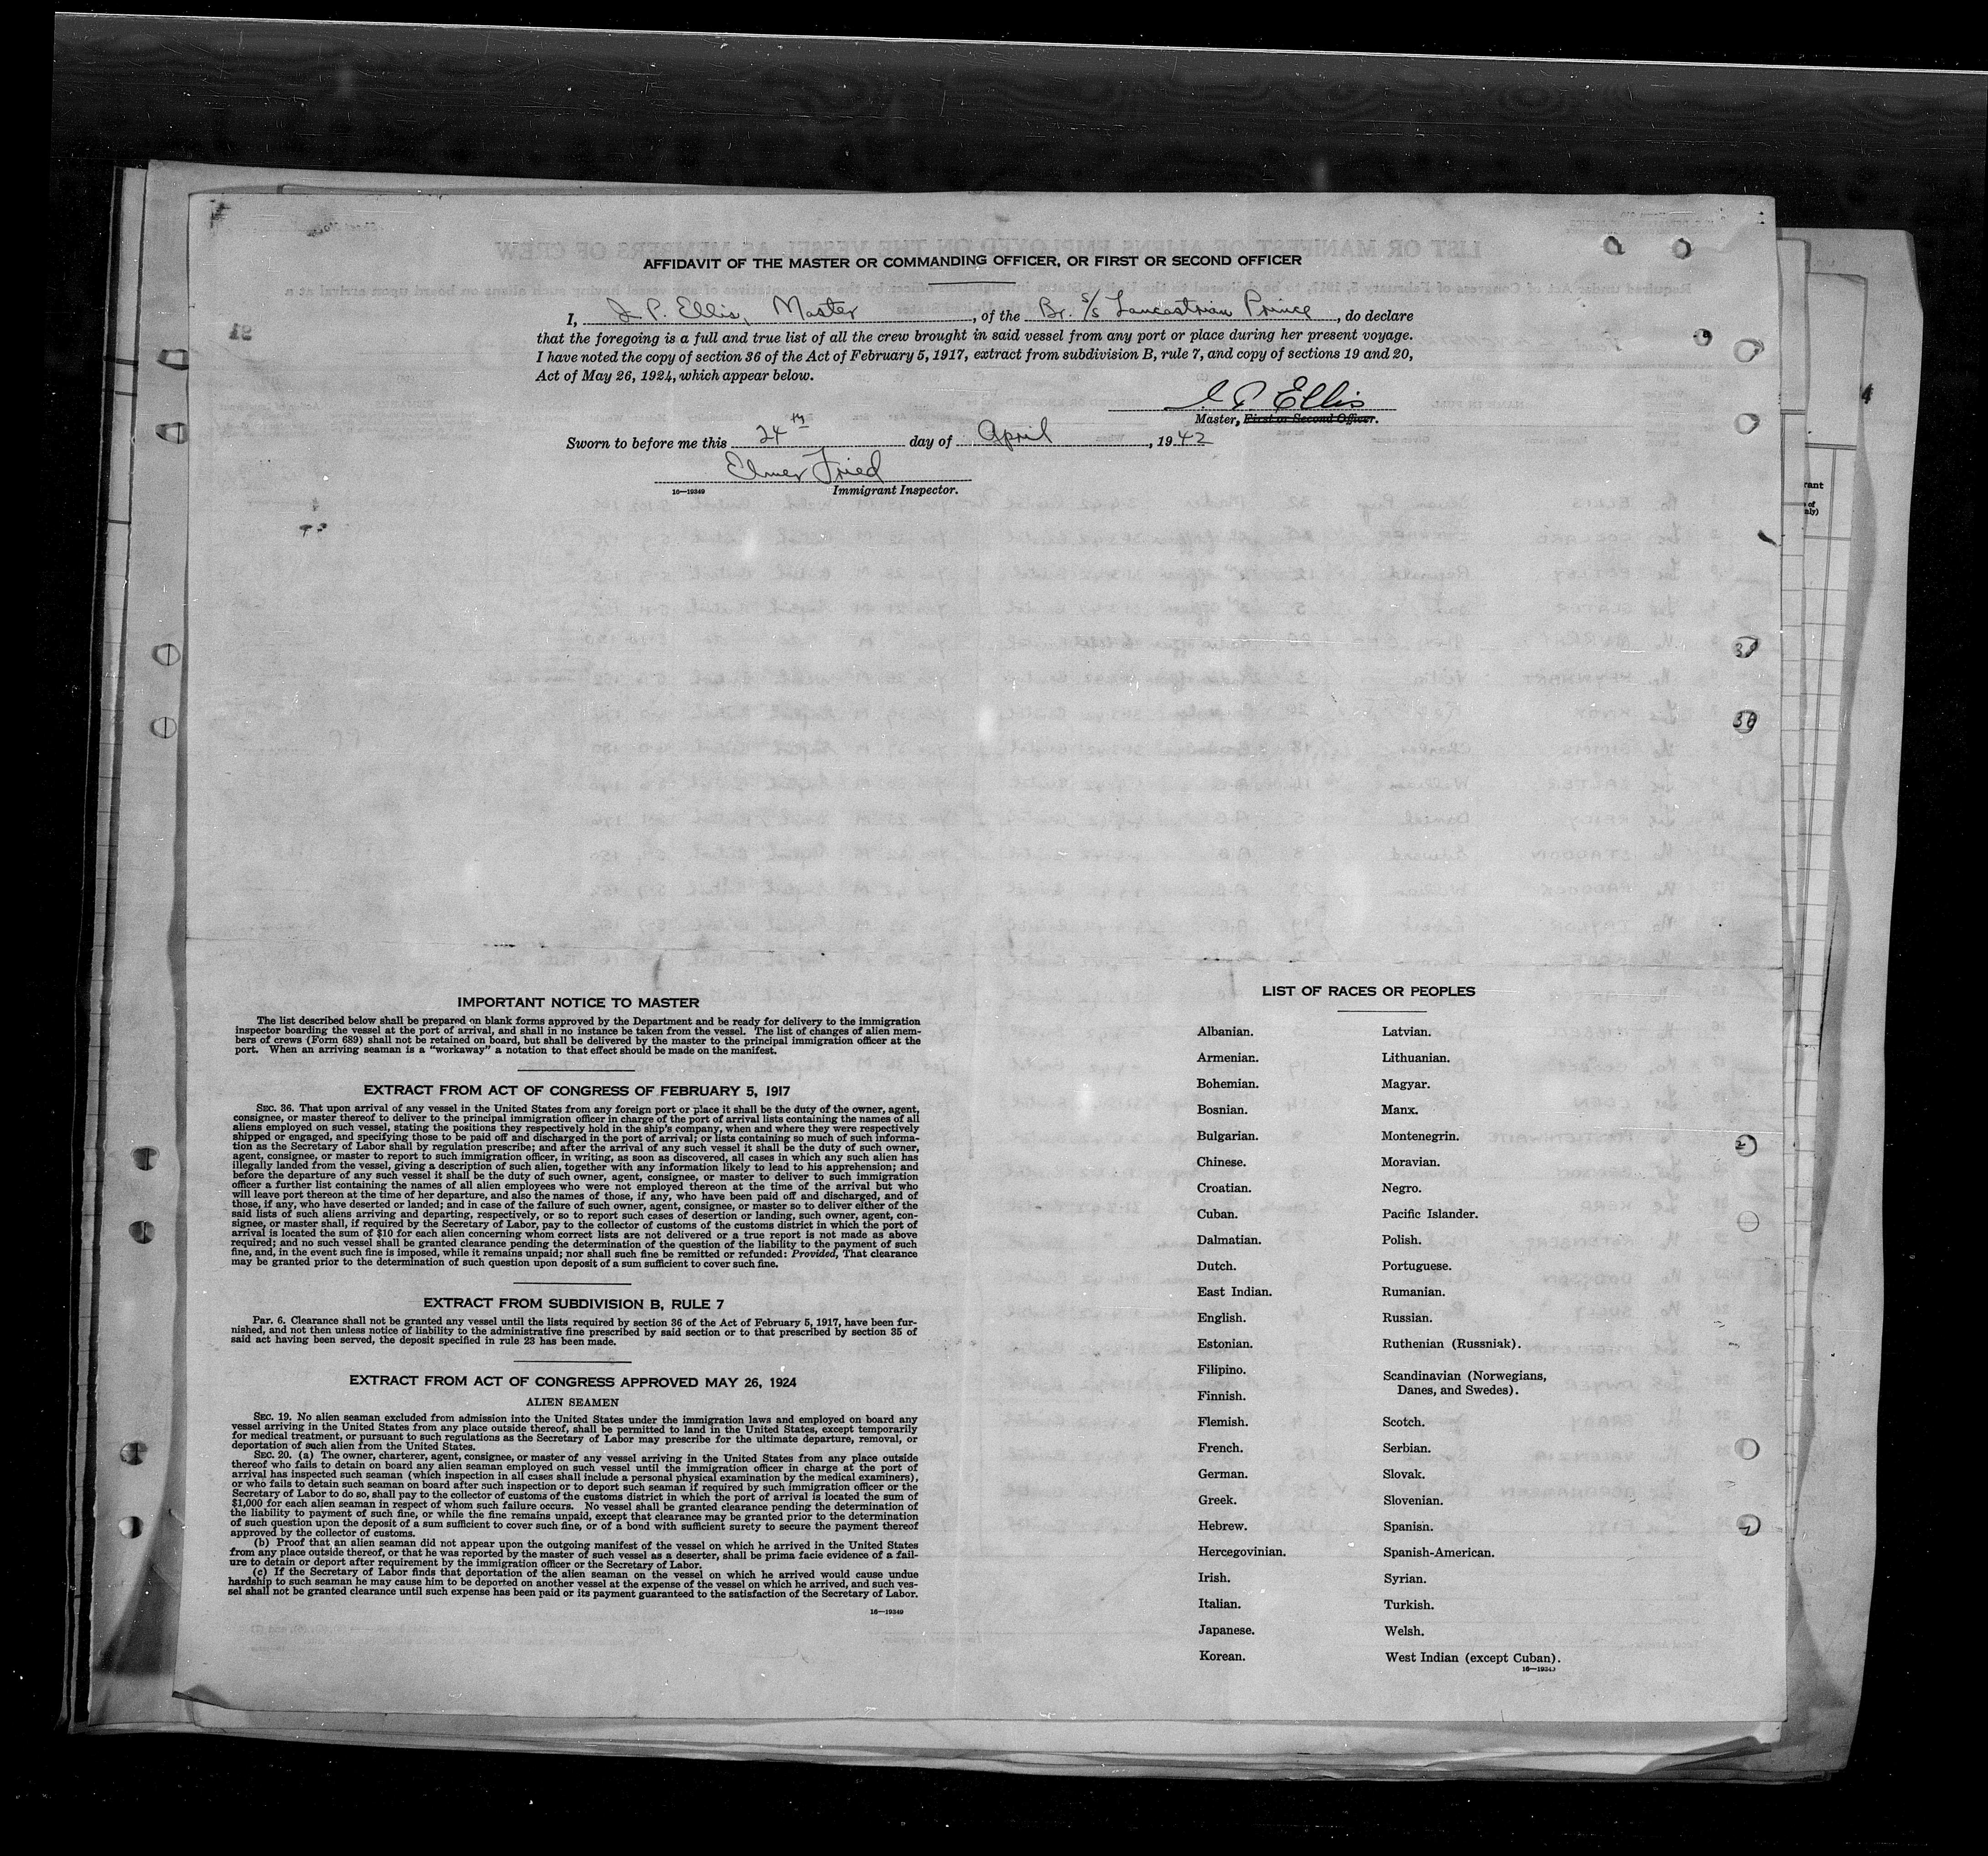 AFFIDAVIT OF THE MASTER OR COMMANDING OFFICER, OR FIRST OR SECOND OFFICER
I, J. P. Ellis, Master, of the Br. S/S Lancastrian Prince, do declare
that the foregoing is a full and true list of all the crew brought in said vessel from any port or place during her present voyage.
I have noted the copy of section 36 of the Act of February 5, 1917, extract from subdivision B, rule 7, and copy of sections 19 and 20,
Act of May 26, 1924, which appear below.
J. P. Ellis
Master, First or Second Officer.
Sworn to before me this 24th day of April, 1942
Elmer Fried
16—19349 Immigrant Inspector.
IMPORTANT NOTICE TO MASTER
The list described below shall be prepared on blank forms approved by the Department and be ready for delivery to the immigration
inspector boarding the vessel at the port of arrival, and shall in no instance be taken from the vessel. The list of changes of alien mem-
bers of crews (Form 689) shall not be retained on board, but shall be delivered by the master to the principal immigration officer at the
port. When an arriving seaman is a "workaway" a notation to that effect should be made on the manifest.
EXTRACT FROM ACT OF CONGRESS OF FEBRUARY 5, 1917
SEC. 36. That upon arrival of any vessel in the United States from any foreign port or place it shall be the duty of the owner, agent,
consignee, or master thereof to deliver to the principal immigration officer in charge of the port of arrival lists containing the names of all
aliens employed on such vessel, stating the positions they respectively hold in the ship's company, when and where they were respectively
shipped or engaged, and specifying those to be paid off and discharged in the port of arrival; or lists containing so much of such informa-
tion as the Secretary of Labor shall by regulation prescribe; and after the arrival of any such vessel it shall be the duty of such owner,
agent, consignee, or master to report to such immigration officer, in writing, as soon as discovered, all cases in which any such alien has
illegally landed from the vessel, giving a description of such alien, together with any information likely to lead to his apprehension; and
before the departure of any such vessel it shall be the duty of such owner, agent, consignee, or master to deliver to such immigration
officer a further list containing the names of all alien employees who were not employed thereon at the time of the arrival but who
will leave port thereon at the time of her departure, and also the names of those, if any, who have been paid off and discharged, and of
those, if any, who have deserted or landed; and in case of the failure of such owner, agent, consignee, or master so to deliver either of the
said lists of such aliens arriving and departing, respectively, or so to report such cases of desertion or landing, such owner, agent, con-
signee, or master shall, if required by the Secretary of Labor, pay to the collector of customs of the customs district in which the port of
arrival is located the sum of $10 for each alien concerning whom correct lists are not delivered or a true report is not made as above
required; and no such vessel shall be granted clearance pending the determination of the question of the liability to the payment of such
fine, and, in the event such fine is imposed, while it remains unpaid; nor shall such fine be remitted or refunded: Provided, That clearance
may be granted prior to the determination of such question upon deposit of a sum sufficient to cover such fine.
EXTRACT FROM SUBDIVISION B, RULE 7
Par. 6. Clearance shall not be granted any vessel until the lists required by section 36 of the Act of February 5, 1917, have been fur-
nished, and not then unless notice of liability to the administrative fine prescribed by said section or to that prescribed by section 35 of
said act having been served, the deposit specified in rule 23 has been made.
EXTRACT FROM ACT OF CONGRESS APPROVED MAY 26, 1924
ALIEN SEAMEN
SEC. 19. No alien seaman excluded from admission into the United States under the immigration laws and employed on board any
vessel arriving in the United States from any place outside thereof, shall be permitted to land in the United States, except temporarily
for medical treatment, or pursuant to such regulations as the Secretary of Labor may prescribe for the ultimate departure, removal, or
deportation of such alien from the United States.
SEC. 20. (a) The owner, charterer, agent, consignee, or master of any vessel arriving in the United States from any place outside
thereof who fails to detain on board any alien seaman employed on such vessel until the immigration officer in charge at the port of
arrival has inspected such seaman (which inspection in all cases shall include a personal physical examination by the medical examiners),
or who fails to detain such seaman on board after such inspection or to deport such seaman if required by such immigration officer or the
Secretary of Labor to do so, shall pay to the collector of customs of the customs district in which the port of arrival is located the sum of
$1,000 for each alien seaman in respect of whom such failure occurs. No vessel shall be granted clearance pending the determination of
the liability to payment of such fine, or while the fine remains unpaid, except that clearance may be granted prior to the determination
of such question upon the deposit of a sum sufficient to cover such fine, or of a bond with sufficient surety to secure the payment thereof
approved by the collector of customs.
(b) Proof that an alien seaman did not appear upon the outgoing manifest of the vessel on which he arrived in the United States
from any place outside thereof, or that he was reported by the master of such vessel as a deserter, shall be prima facie evidence of a fail-
ure to detain or deport after requirement by the immigration officer or the Secretary of Labor.
(c) If the Secretary of Labor finds that deportation of the alien seaman on the vessel on which he arrived would cause undue
hardship to such seaman he may cause him to be deported on another vessel at the expense of the vessel on which he arrived, and such ves-
sel shall not be granted clearance until such expense has been paid or its payment guaranteed to the satisfaction of the Secretary of Labor.
16—19349
LIST OF RACES OR PEOPLES
Albanian.
Armenian.
Bohemian.
Bosnian.
Bulgarian.
Chinese.
Croatian.
Cuban.
Dalmatian.
Dutch.
East Indian.
English.
Estonian.
Filipino.
Finnish.
Flemish.
French.
German.
Greek.
Hebrew.
Hercegovinian.
Irish.
Italian.
Japanese.
Korean.
Latvian.
Lithuanian.
Magyar.
Manx.
Montenegrin.
Moravian.
Negro.
Pacific Islander.
Polish.
Portuguese.
Rumanian.
Russian.
Ruthenian (Russniak).
Scandinavian (Norwegians,
Danes, and Swedes).
Scotch.
Serbian.
Slovak.
Slovenian.
Spanish.
Spanish-American.
Syrian.
Turkish.
Welsh.
West Indian (except Cuban).
16—19349